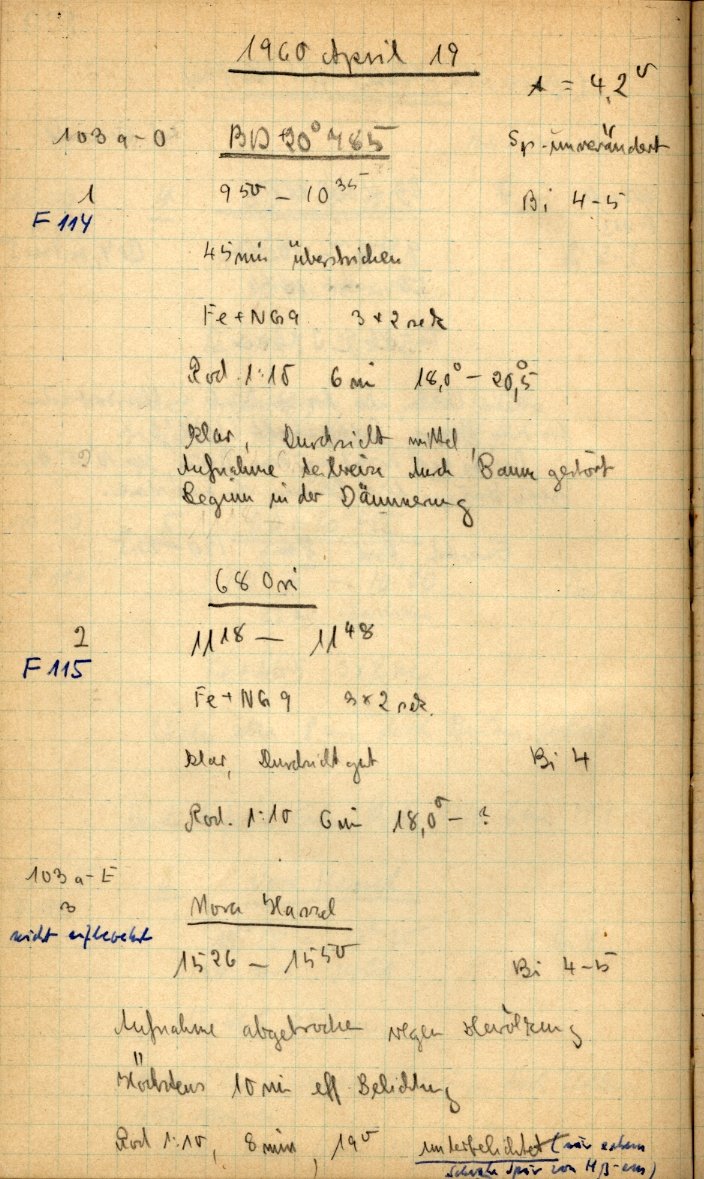 1960 April 19
A = 4,2
103a-O BD+20°785 Sp-unverändert
1 9 50 – 10 35 Bi 4-5
F 114
45 min überstrichen
Fe + NG 9 3 × 2 sek
Rod. 1:10 6 min 18,0° – 20,5°
klar, Durchsicht mittel,
Aufnahme teilweise durch Baum gestört
Beginn in der Dämmerung
68 Ori
2 11 18 – 11 48
F 115
Fe + NG 9 3 × 2 sek.
klar, Durchsicht gut Bi 4
Rod. 1:10 6 min 18,0° – ?
103a-E
3 Nova Hassel
nicht aufbewahrt
15 26 – 15 50 Bi 4-5
Aufnahme abgebrochen wegen Bewölkung
Höchstens 10 min eff Belichtung
Rod 1:10, 8 min, 19° unterbelichtet (nur
schwache Spur von Hβ-em)